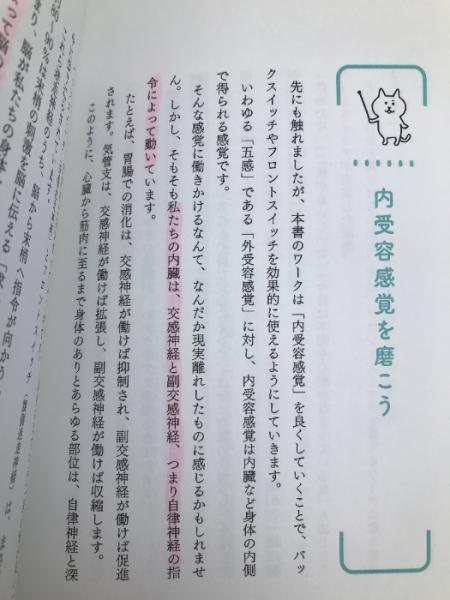 内受容感覚を磨こう
先にも触れましたが、本書のワークは「内受容感覚」を良くしていくことで、バッ
クスイッチやフロントスイッチを効果的に使えるようにしていきます。
いわゆる「五感」である「外受容感覚」に対し、内受容感覚は内臓など身体の内側
で得られる感覚です。
そんな感覚に働きかけるなんて、なんだか現実離れしたものに感じるかもしれませ
ん。しかし、そもそも私たちの内臓は、交感神経と副交感神経、つまり自律神経の指
令によって動いています。
たとえば、胃腸での消化は、交感神経が働けば抑制され、副交感神経が働けば促進
されます。気管支は、交感神経が働けば拡張し、副交感神経が働けば収縮します。
このように、心臓から筋肉に至るまで身体のありとあらゆる部位は、自律神経と深
フロントスイッチ（腹側迷走神経）は、
のうち、脳から末梢へ指令が向かう
90％は末梢の刺激を脳に伝える
、脳が私たちの身体を
って脳の